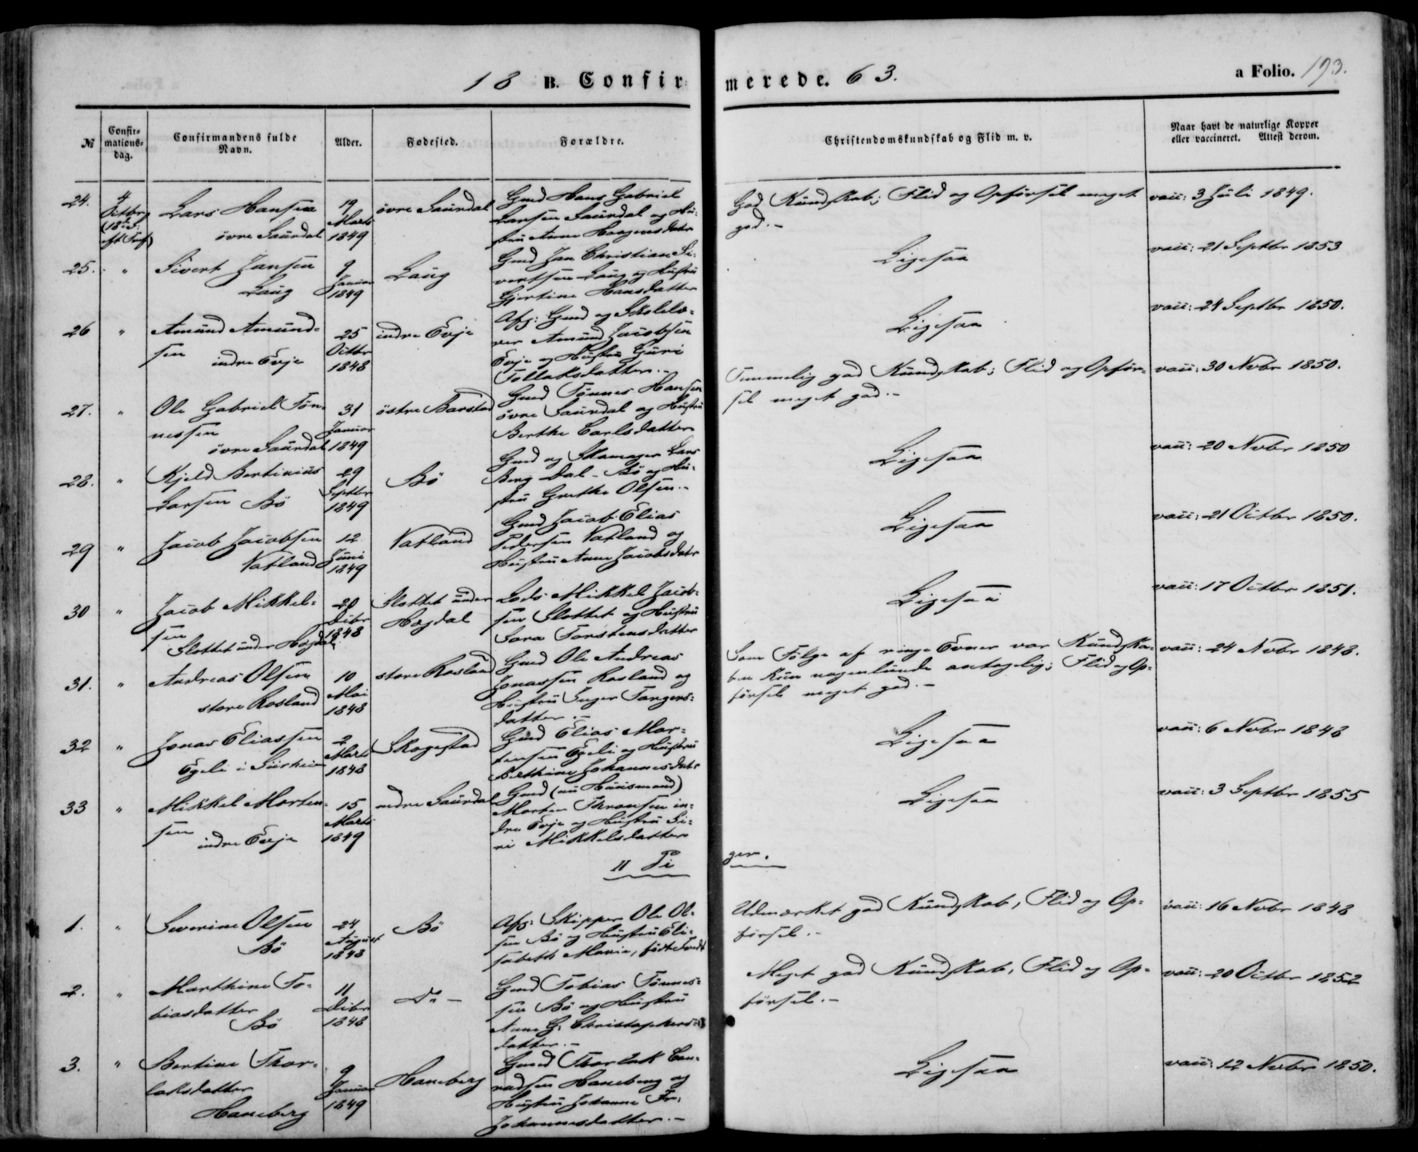 18 B. Confirmerede. 63.
a Folio. 193.
№
Confirmations-dag.
Confirmandens fulde Navn.
Alder.
Fødested.
Forældre.
Christendomskundskab og Flid m. v.
Naar havt de naturlige Kopper eller vaccineret. Attest derom.
24.
4 Octbr
Lars Hansen
øvre Saurdal
19 Marts 1849
øvre Saurdal
Gmd Hans Gabriel
Larsen Saurdal og Hu-
stru Anne Haagensdatter
God Kundskab; Flid og Opførsel meget
god.-
vacc: 3 Juli 1849.
25. "
Sivert Jansen
Laug
9 Januar 1849
Laug
Gmd Jan Christian Si-
vertsen Laug og Hustru
Gjertine Hansdatter
Ligesaa
vacc: 21 Septbr 1853
26 "
Amund Amund-
sen
indre Evje
25 Octbr 1848
indre Evje
Afg: Gmd og Skolelæ-
rer Amund Jacobsen
Evje og Hustru Guri
Tollaksdatter.-
Ligesaa
vacc: 24 Septbr 1850.
27. "
Ole Gabriel Tøn-
nessen
øvre Saurdal
31 Januar 1849
østre Barstad
Gmd Tønnes Hansen
øvre Saurdal og Hustru
Berthe Carlsdatter
Temmelig god Kundskab; Flid og Opfør-
sel meget god.-
vacc: 30 Novbr 1850.
28. "
Kjeld Bertinius
Larsen Bø
29 Septbr 1849
Bø
Gmd og Skomager Lars
Berg Dal - Bø og Hu-
stru Grethe Olsen.-
Ligesaa
vacc: 20 Novbr 1850
29 "
Jacob Jacobsen
Vatland
12 Juni 1849
Vatland
Gmd Jacob Elias
Pedersen Vatland og
Hustru Anne Jacobsdatr
Ligesaa
vacc: 21 Octbr 1850.
30 "
Jacob Mikkel-
sen
Slottet under Høgdal
Dcbr 1848
Slottet under
Høgdal
Mikkel Jacob-
sen Slottet og Hustru
Sara Torstensdatter
Ligesaa
vacc: 17 Octbr 1851.
31. "
Andreas Olsen
store Rosland
10 Mai 1848
store Rosland
Gmd Ole Andreas
Jonassen Rosland og
Hustru Inger Tarjers-
datter.-
Som Følge af ringe Evner var Kundska-
ben kun nogenlunde antagelig; Flid og Op-
førsel meget god.-
vacc: 24 Novbr 1848.
32 "
Jonas Eliassen
Egeli i Surheim
2 Marts 1848
Skogestad
Gmd Elias Mor-
tensen Egeli og Hustru
Berthine Johannesdatr
Ligesaa
vacc: 6 Novbr 1848
33 "
Mikkel Morten-
sen
indre Evje
15 Marts 1849
nedre Saurdal
Gmd (nu Huusmand)
Morten Thronsen in-
dre Evje og Hustru Si-
ri Mikkelsdatter
Ligesaa
vacc: 3 Septbr 1855
11 Piger.
1. "
Severine Olsen
Bø
24 August 1848
Bø
Afg: Skipper Ole Ol-
sen Bø og Hustru Eli-
sabeth Maria, født
Udmærket god Kundskab, Flid og Op-
førsel.-
vacc: 16 Novbr 1848
2. "
Marthine To-
biasdatter
Bø
11 Dcbr 1848
Do -
Gmd Tobias Tønnes-
sen Bø og Hustru
Anne G. Christophers-
datter.-
Meget god Kundskab, Flid og Op-
førsel.-
vacc: 20 Octbr 1852
3. "
Bertine Thor-
laksdatter
Haneberg
9 Januar 1849
Haneberg
Gmd Thorlak Con-
radsen Haneberg og
Hustru Johanne Fr.
Johannesdatter.-
Ligesaa
vacc: 12 Novbr 1850.